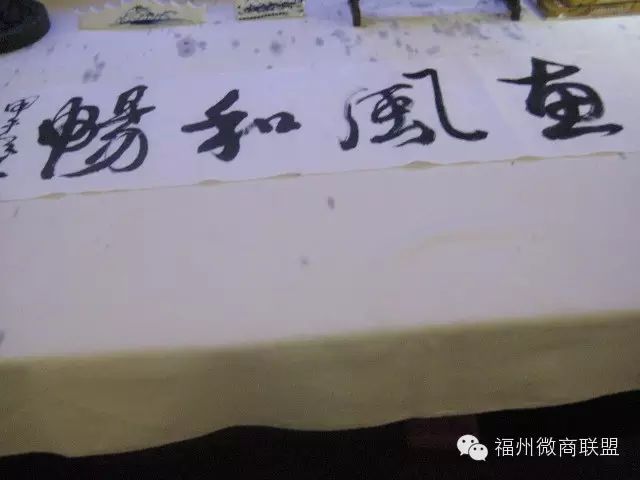 惠風和暢
甲午
福州微商联盟